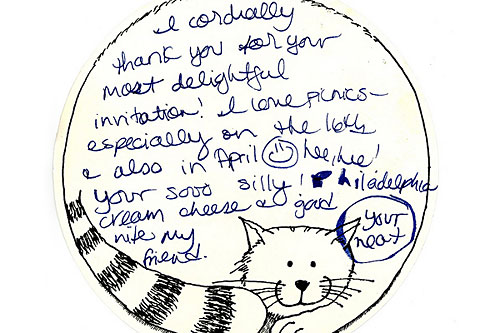 I cordially
thank you for your
most delightful
invitation! I love picnics-
especially on the 16th
& also in April hee, hee!
your sooo silly! Philadelphia
cream cheese & good
nite my
friend.
your
neat